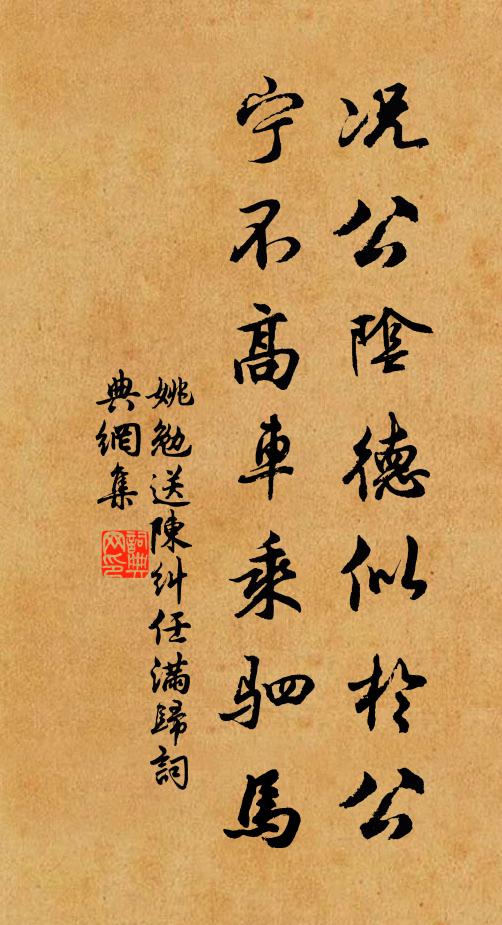 况公陰德似於公
宁不高車乘驷馬
姚勉送陳糾任滿歸詞
典網集
詞典
网印